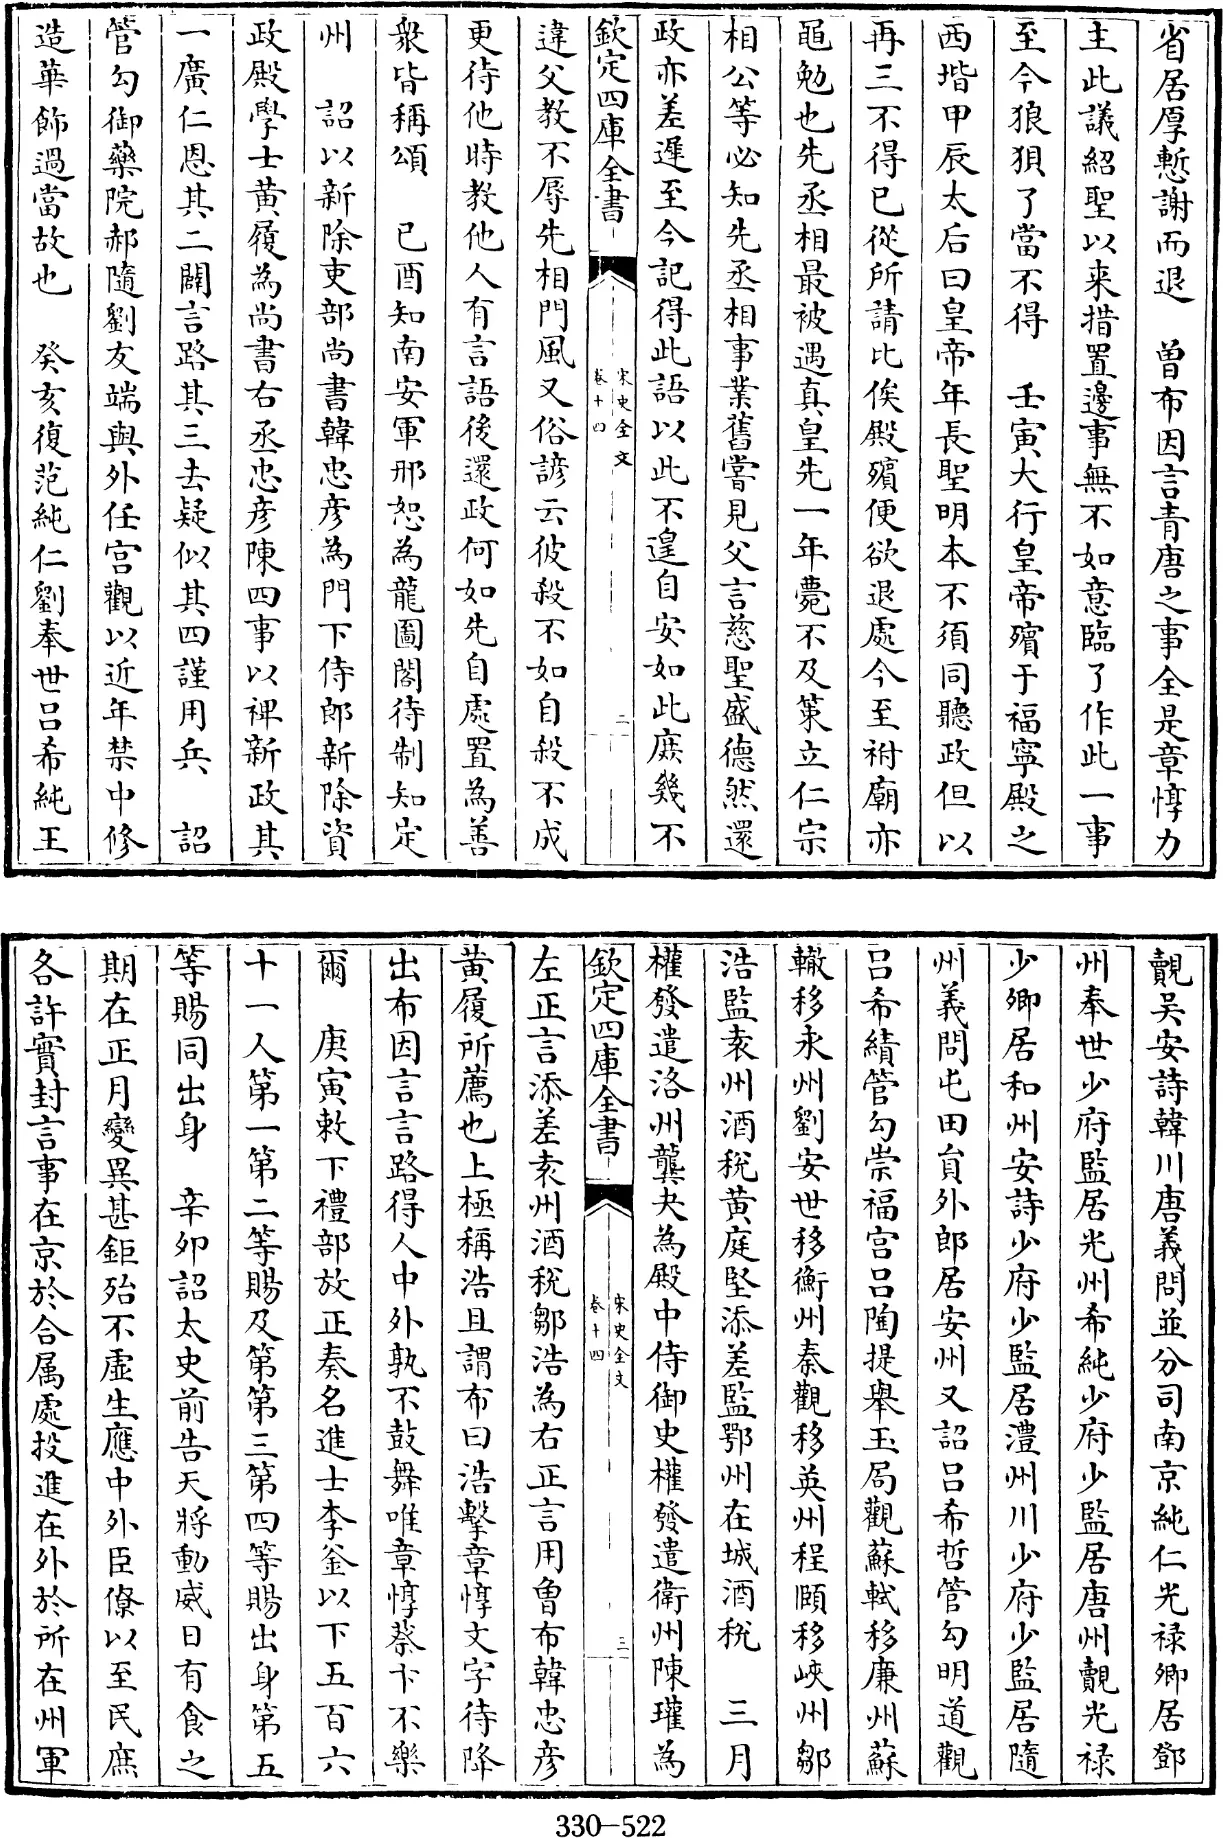 省居厚慙謝而退　曾布因言青唐之事全是章惇力
主此議紹聖以来措置邊事無不如意臨了作此一事
至今狼狽了當不得　壬寅大行皇帝殯于福寧殿之
西堦甲辰太后曰皇帝年長聖明本不須同聽政但以
再三不得已從所請比俟殿殯便欲退處今至祔廟亦
黽勉也先丞相最被遇真皇先一年薨不及策立仁宗
相公等必知先丞相事業舊嘗見父言慈聖盛德然還
政亦差遲至今記得此語以此不遑自安如此庶幾不
欽定四庫全書　宋史全文　卷十四　二
違父教不辱先相門風又俗諺云彼殺不如自殺不成
更待他時教他人有言語後還政何如先自處置為善
衆皆稱頌　已酉知南安軍邢恕為龍圖閣待制知定
州　詔以新除吏部尚書韓忠彦為門下侍郎新除資
政殿學士黄履為尚書右丞忠彦陳四事以裨新政其
一廣仁恩其二闢言路其三去疑似其四謹用兵　詔
管勾御藥院郝隨劉友端與外任宫觀以近年禁中修
造華飾過當故也　癸亥復范純仁劉奉世吕希純王
覿吴安詩韓川唐義問並分司南京純仁光禄卿居鄧
州奉世少府監居光州希純少府少監居唐州覿光禄
少卿居和州安詩少府少監居澧州川少府少監居隨
州義問屯田員外郎居安州又詔吕希哲管勾明道觀
吕希績管勾崇福宫吕陶提舉玉局觀蘇軾移廉州蘇
轍移永州劉安世移衡州秦觀移英州程頤移峽州鄒
浩監袁州酒稅黄庭堅添差監鄂州在城酒稅　三月
權發遣洛州龔夬為殿中侍御史權發遣衛州陳瓘為
欽定四庫全書　宋史全文　卷十四　三
左正言添差袁州酒稅鄒浩為右正言用曾布韓忠彦
黄履所薦也上極稱浩且謂布曰浩擊章惇文字待降
出布因言言路得人中外孰不鼓舞唯章惇蔡卞不樂
爾　庚寅敕下禮部放正奏名進士李釜以下五百六
十一人第一第二等賜及第第三第四等賜出身第五
等賜同出身　辛夘詔太史前告天將動威日有食之
期在正月變異甚鉅殆不虚生應中外臣僚以至民庶
各許實封言事在京於合属處投進在外於所在州軍
330—522